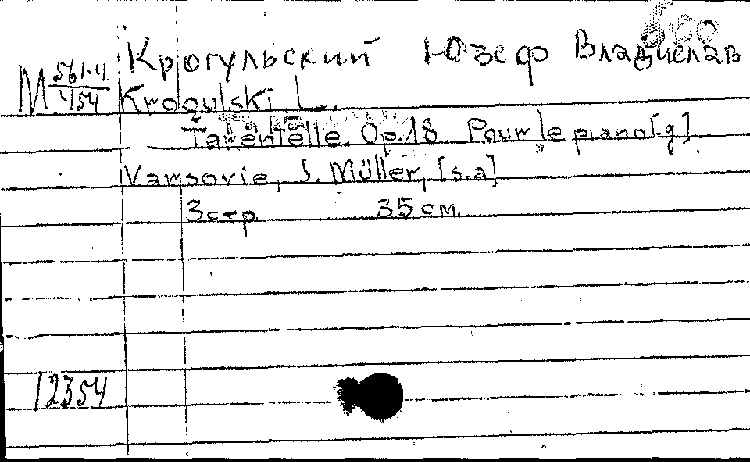 Крогульский Юзеф Владислав
М 561-4/454 Krogulski L.
Tarentelle. Op.18 Pour le piano [g]
Varsovie, J. Müller, [s.a]
3 стр 35 см.
12354